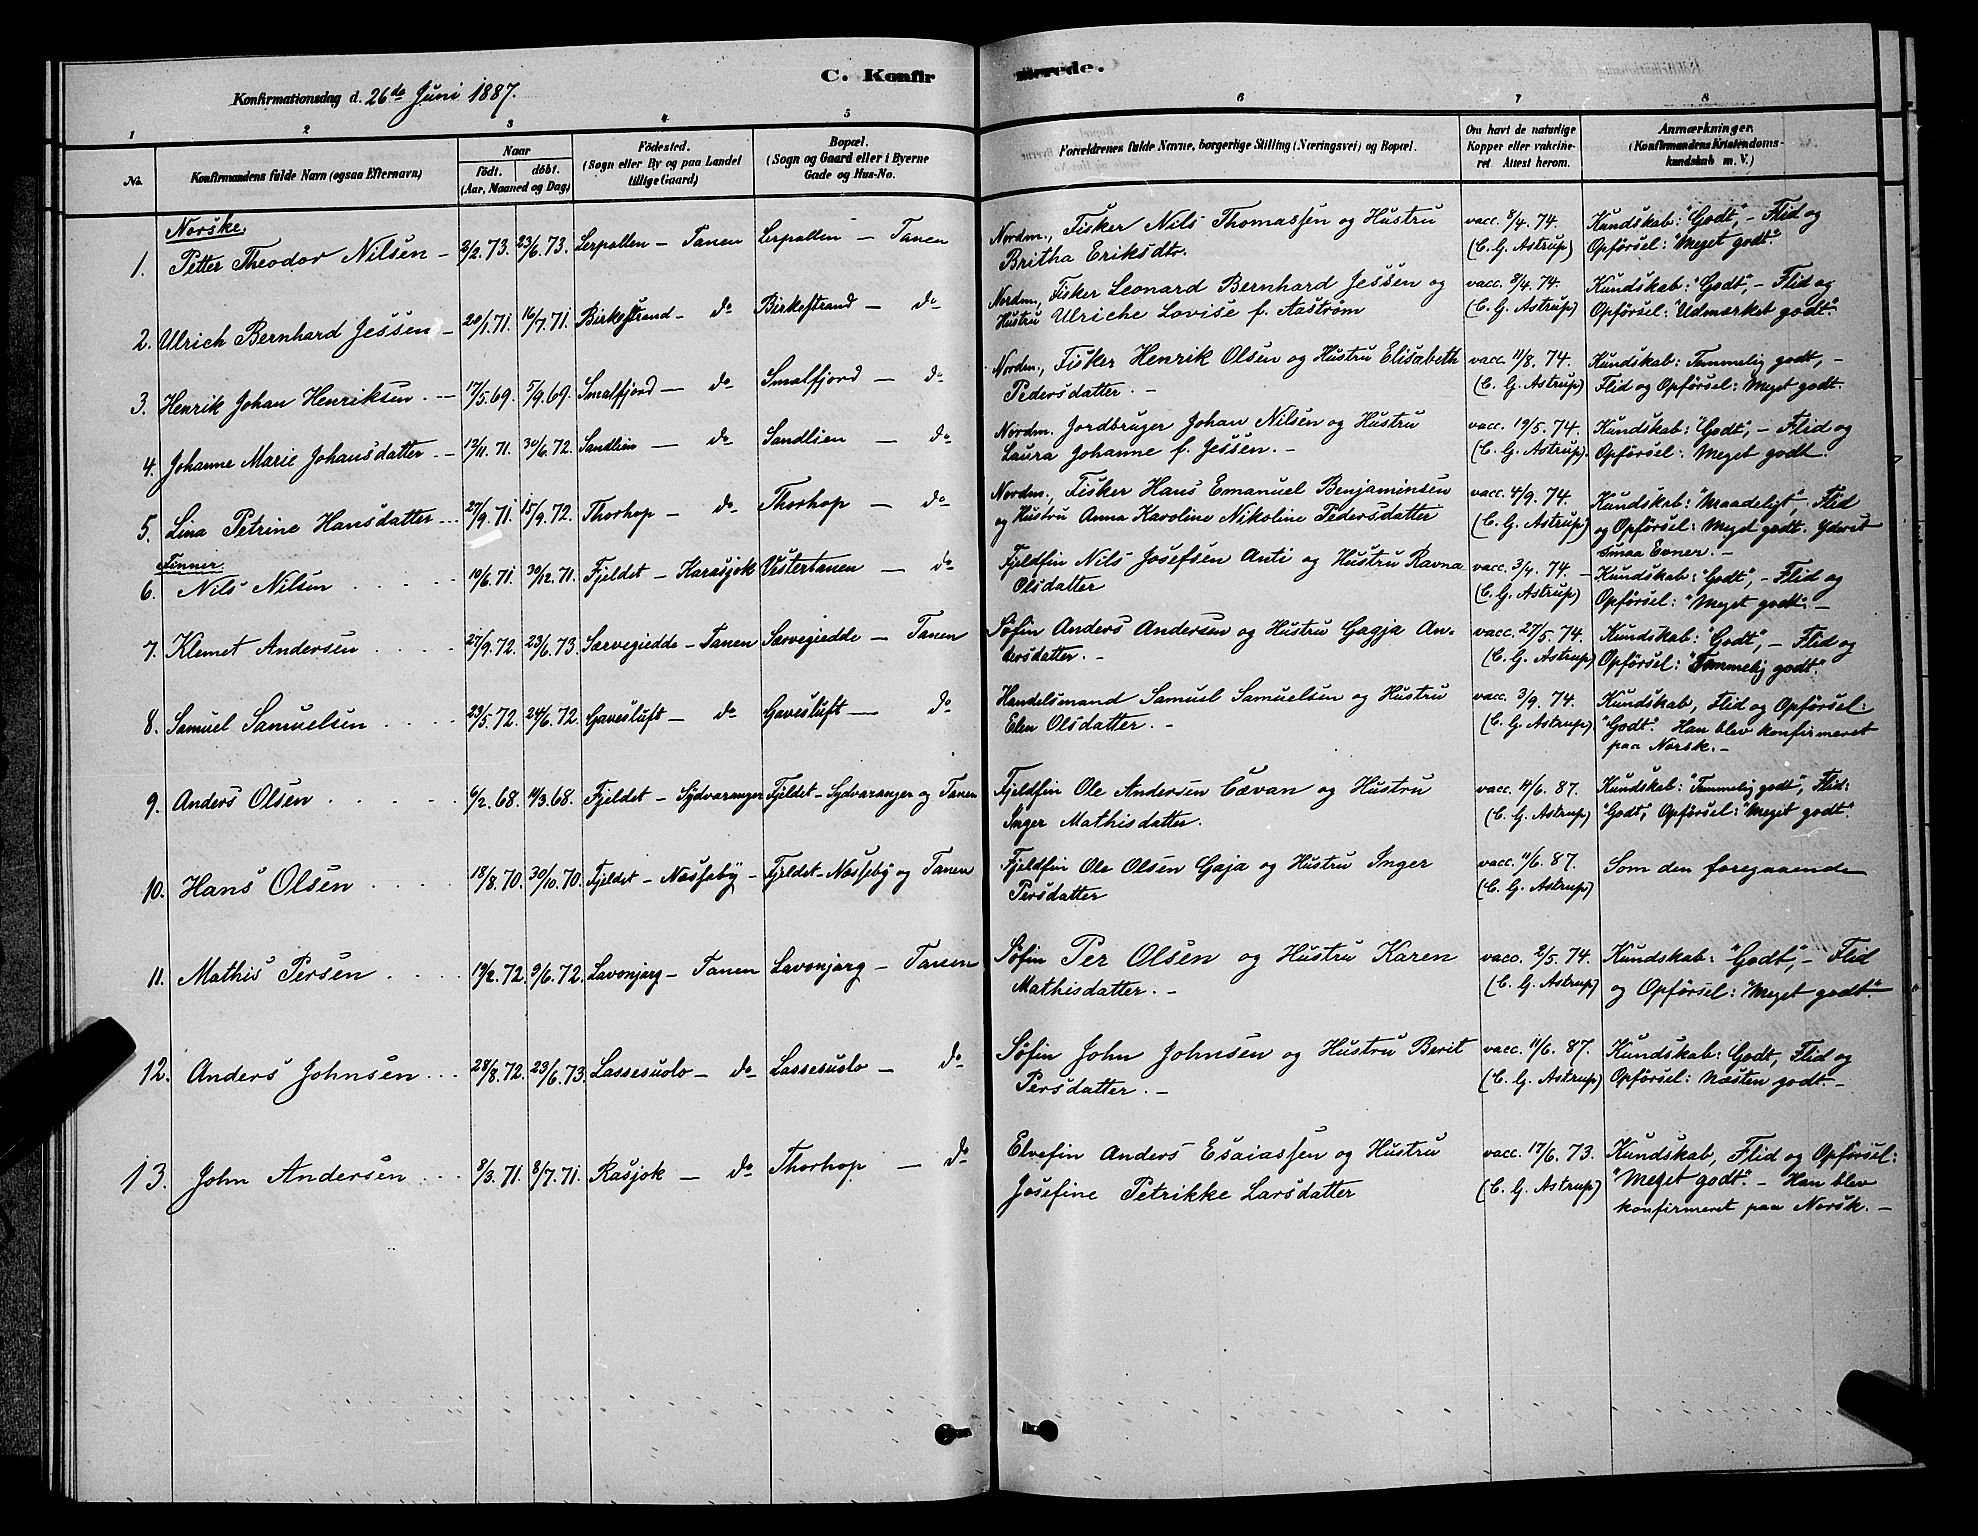 C. Konfirmerede.
Konfirmationsdag d. 26de Juni 1887.
1 2 3 4 5 6 7 8
No.
Konfirmandens fulde Navn (ogsaa Efternavn)
Naar
födt. döbt.
(Aar, Maaned og Dag)
Födested.
(Sogn eller By og paa Landet
tillige Gaard)
Bopæl.
(Sogn og Gaard eller i Byerne
Gade og Hus-No.
Forældrenes fulde Navne, borgerlige Stilling (Næringsvei) og Bopæl.
Om havt de naturlige
Kopper eller vakcine-
ret. Attest herom.
Anmærkninger.
(Konfirmandens Kristendoms-
kundskab m. V.)
Norske.
1. Petter Theodor Nilsen – 2/2.73. 23/6.73. Lerpollen – Tanen Lerpollen – Tanen Nordm., Fisker Nils Thomassen og Hustru vacc. 8/4.74. Kundskab: "Godt", – Flid og
Britha Eriksdtr. (C. G. Astrup) Opförsel: "Meget godt".
2. Ulrich Bernhard Jessen – 20/1.71. 16/7.71. Birkestrand – do Birkestrand – do Nordm., Fisker Leonard Bernhard Jessen og vacc. 8/4.74. Kundskab: "Godt", – Flid og
Hustru Ulriche Lovise f. Aaström (C. G. Astrup) Opförsel: "Udmærket godt".
3. Henrik Johan Henriksen. – 17/5.69. 5/9.69. Smalfjord – do Smalfjord – do Nordm., Fisker Henrik Olsen og Hustru Elisabeth vacc. 11/8.74. Kundskab: Temmelig godt, –
Pedersdatter. – (C. G. Astrup) Flid og Opförsel: Meget godt.
4. Johanne Marie Johansdatter. – 12/11.71. 30/6.72. Sandlien – do Sandlien – do Nordm. Jordbruger Johan Nilsen og Hustru vacc. 19/5.74. Kundskab: "Godt", – Flid og
Laura Johanne f. Jessen. – (C. G. Astrup). Opförsel: Meget godt.
5. Lina Petrine Hansdatter... 27/9.71. 15/9.72. Thorhop – do Thorhop – do Nordm., Fisker Hans Emanuel Benjaminsen vacc. 4/9.74. Kundskab: "Maadeligt, Flid
og Hustru Anna Karoline Nikoline Pedersdatter (C. G. Astrup) og Opförsel: Meget godt. Yderst
smaa Evner. –
Finner.
6. Nils Nilsen . . . . . 10/6.71. 30/12.71. Fjeldet – Karasjok Vestertanen – do Fjeldfin Nils Josefsen Anti og Hustru Ravna vacc. 3/4.74. – Kundskab: "Godt", – Flid og
Olsdatter (C. G. Astrup) Opförsel: "Meget godt". –
7. Klemet Andersen . . . . . 27/9.72. 23/6.73. Sarvegiedde – Tanen Sarvegiedde – Tanen Söfin Anders Andersen og Hustru Gagja An- vacc. 27/5.74. Kundskab: "Godt", – Flid og
dersdatter. – (C. G. Astrup) Opförsel: "Temmelig godt".
8. Samuel Samuelsen . . . . 23/5.72. 24/6.72. Gavesluft – do Gavesluft – do Handelsmand Samuel Samuelsen og Hustru vacc. 3/9.74. Kundskab, Flid og Opförsel:
Elen Olsdatter. – (C. G. Astrup) "Godt". Han blev konfirmeret
paa Norsk. –
9. Anders Olsen . . . . . 6/2.68. 11/3.68. Fjeldet – Sydvaranger Fjeldet – Sydvaranger og Tanen Fjeldfin Ole Andersen Cævan og Hustru vacc. 11/6.87. Kundskab: "Temmelig godt", Flid:
Inger Mathisdatter. (C. G. Astrup) "Godt", Opförsel: "Meget godt".
10. Hans Olsen . . . . 18/8.70. 30/10.70. Fjeldet – Næsseby – Fjeldet – Næsseby og Tanen Fjeldfin Ole Olsen Gaja og Hustru Inger vacc. 11/6.87. Som den foregaaende
Persdatter (C. G. Astrup)
11. Mathis Persen . . . . 19/2.72. 9/6.72. Lavonjarg – Tanen Lavonjarg – Tanen Söfin Per Olsen og Hustru Karen vacc. 2/5.74. Kundskab: "Godt", – Flid
Mathisdatter. – (C. G. Astrup) og Opförsel: "Meget godt".
12. Anders Johnsen . . . 28/8.72. 23/6.73. Lassesuolo – do Lassesuolo – do Söfin John Johnsen og Hustru Berit vacc. 11/6.87. Kundskab: Godt, Flid og
Persdatter. – (C. G. Astrup) Opförsel: Næsten godt. –
13. John Andersen . . . 8/3.71. 8/7.71. Rasjok – do Thorhop – do Elvefin Anders Esaiassen og Hustru vacc. 17/6.73. Kundskab, Flid og Opförsel:
Josefine Petrikke Larsdatter (C. G. Astrup) "Meget godt". – Han blev
konfirmeret paa Norsk. –